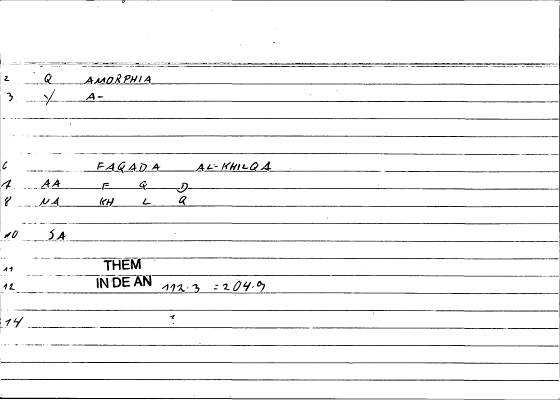 2 Q AMORPHIA
3 Y A-
6 FAQADA AL-KHILQA
7 AA F Q D
8 NA KH L Q
10 SA
11 THEM
12 IN DE AN 112.3 = 204.9
14 ?